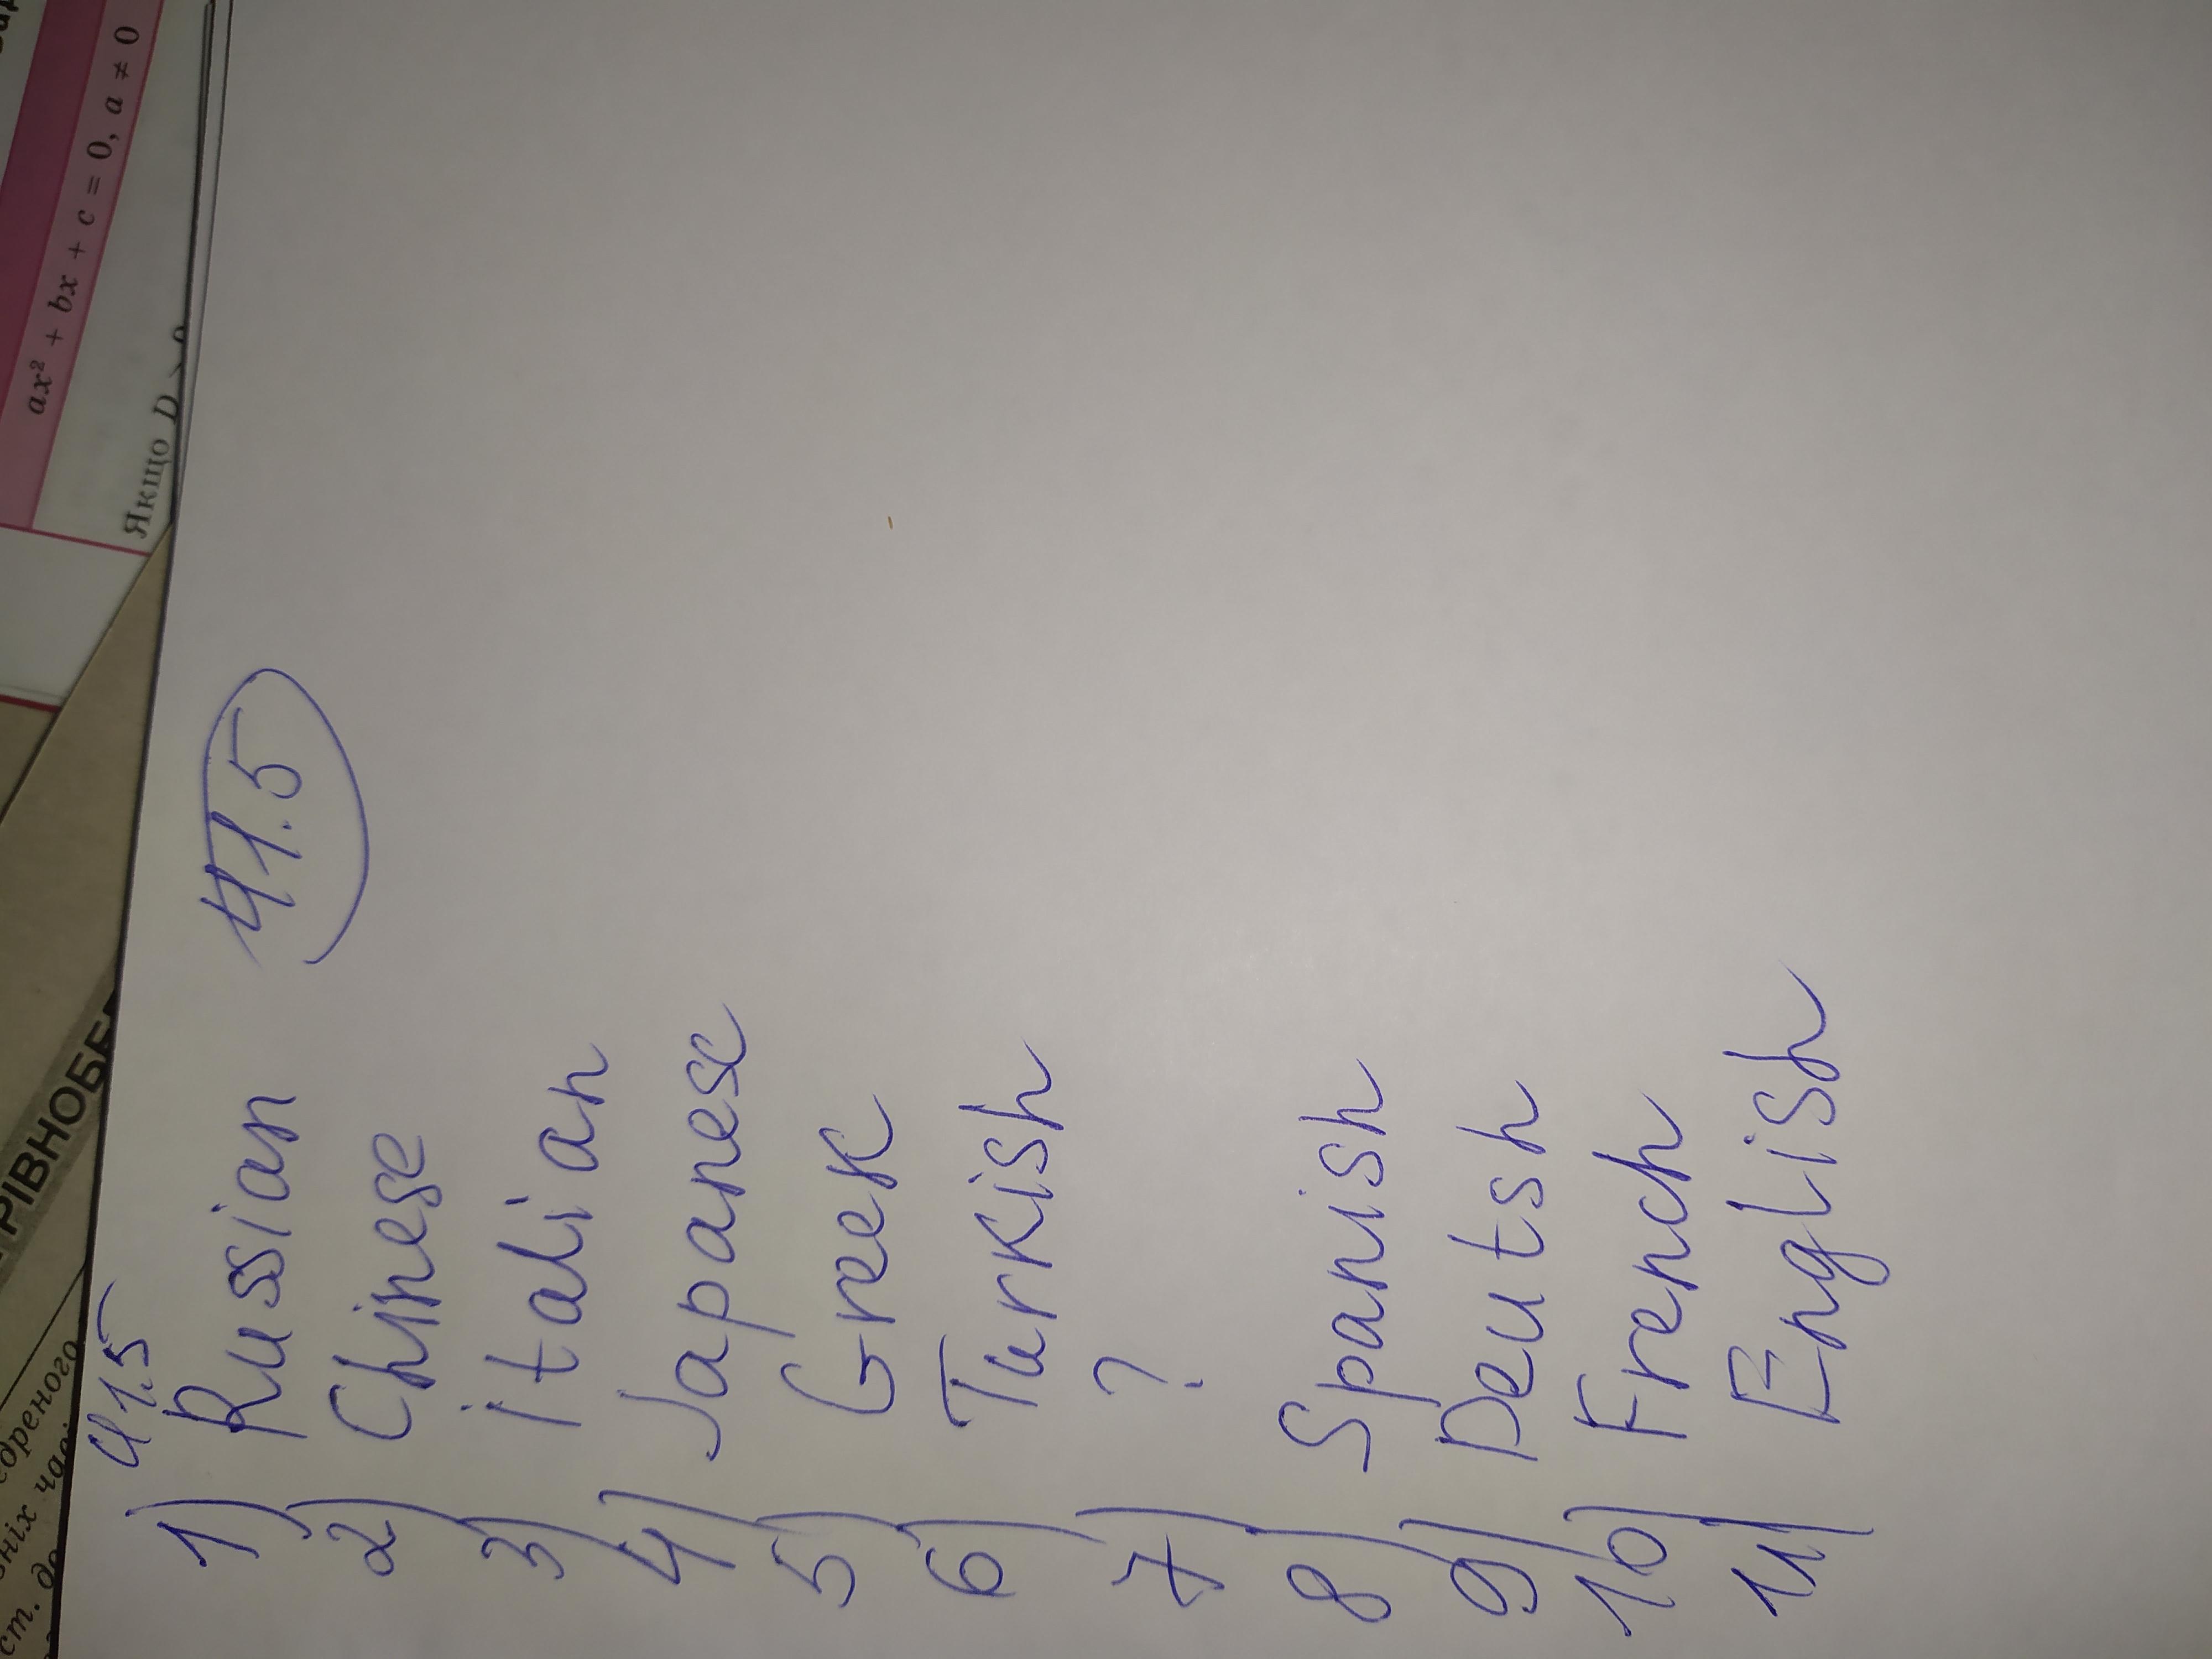 ax² + bx + c = 0, a ≠ 0
Якщо D >
РІВНОБЕ
ст. до
41.5
41.5
1) Russian
2) Chinese
3) italian
4) Japanese
5) Greek
6) Turkish
7) ?
8) Spanish
9) Deutsh
10) French
11) English